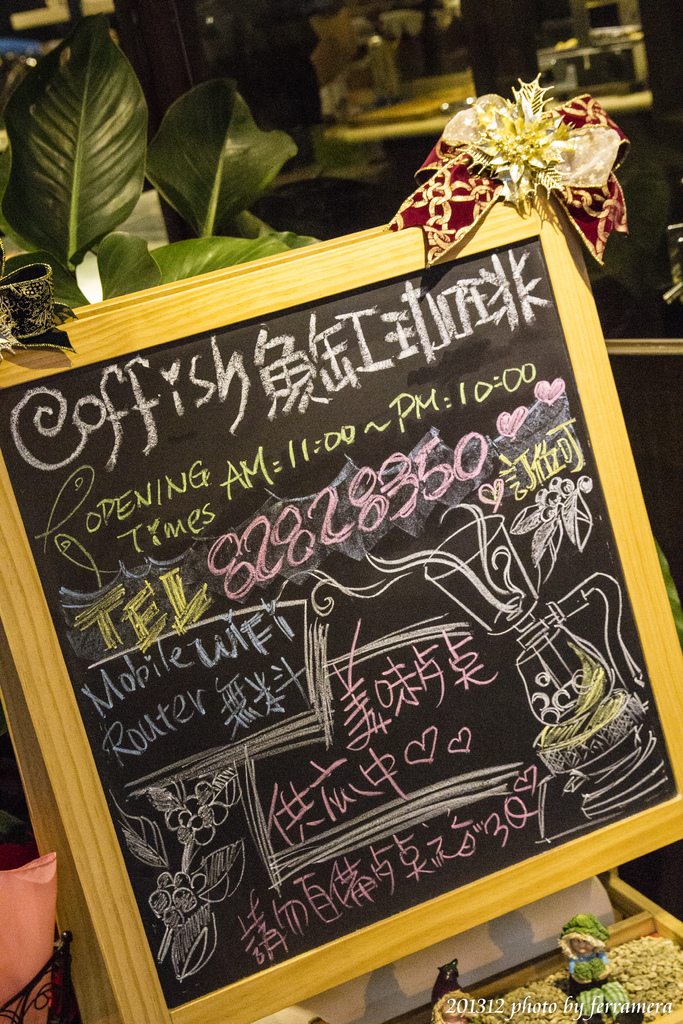 Coffish 魚缸珈琲
OPENING Times AM:11:00~PM:10:00
TEL 82828350 訂位可
Mobile WiFi
Router 無料
美味点
供应中
請勿自備点
201312 photo by ferramera